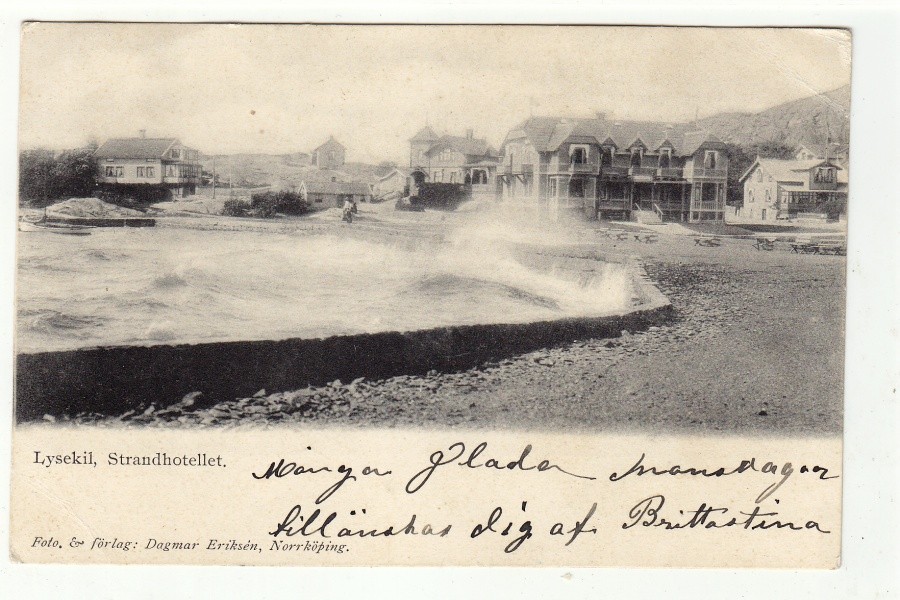 Lysekil, Strandhotellet.
Många glada
tillänskas dig af Brittastina
Foto. & förlag: Dagmar Eriksén, Norrköping.